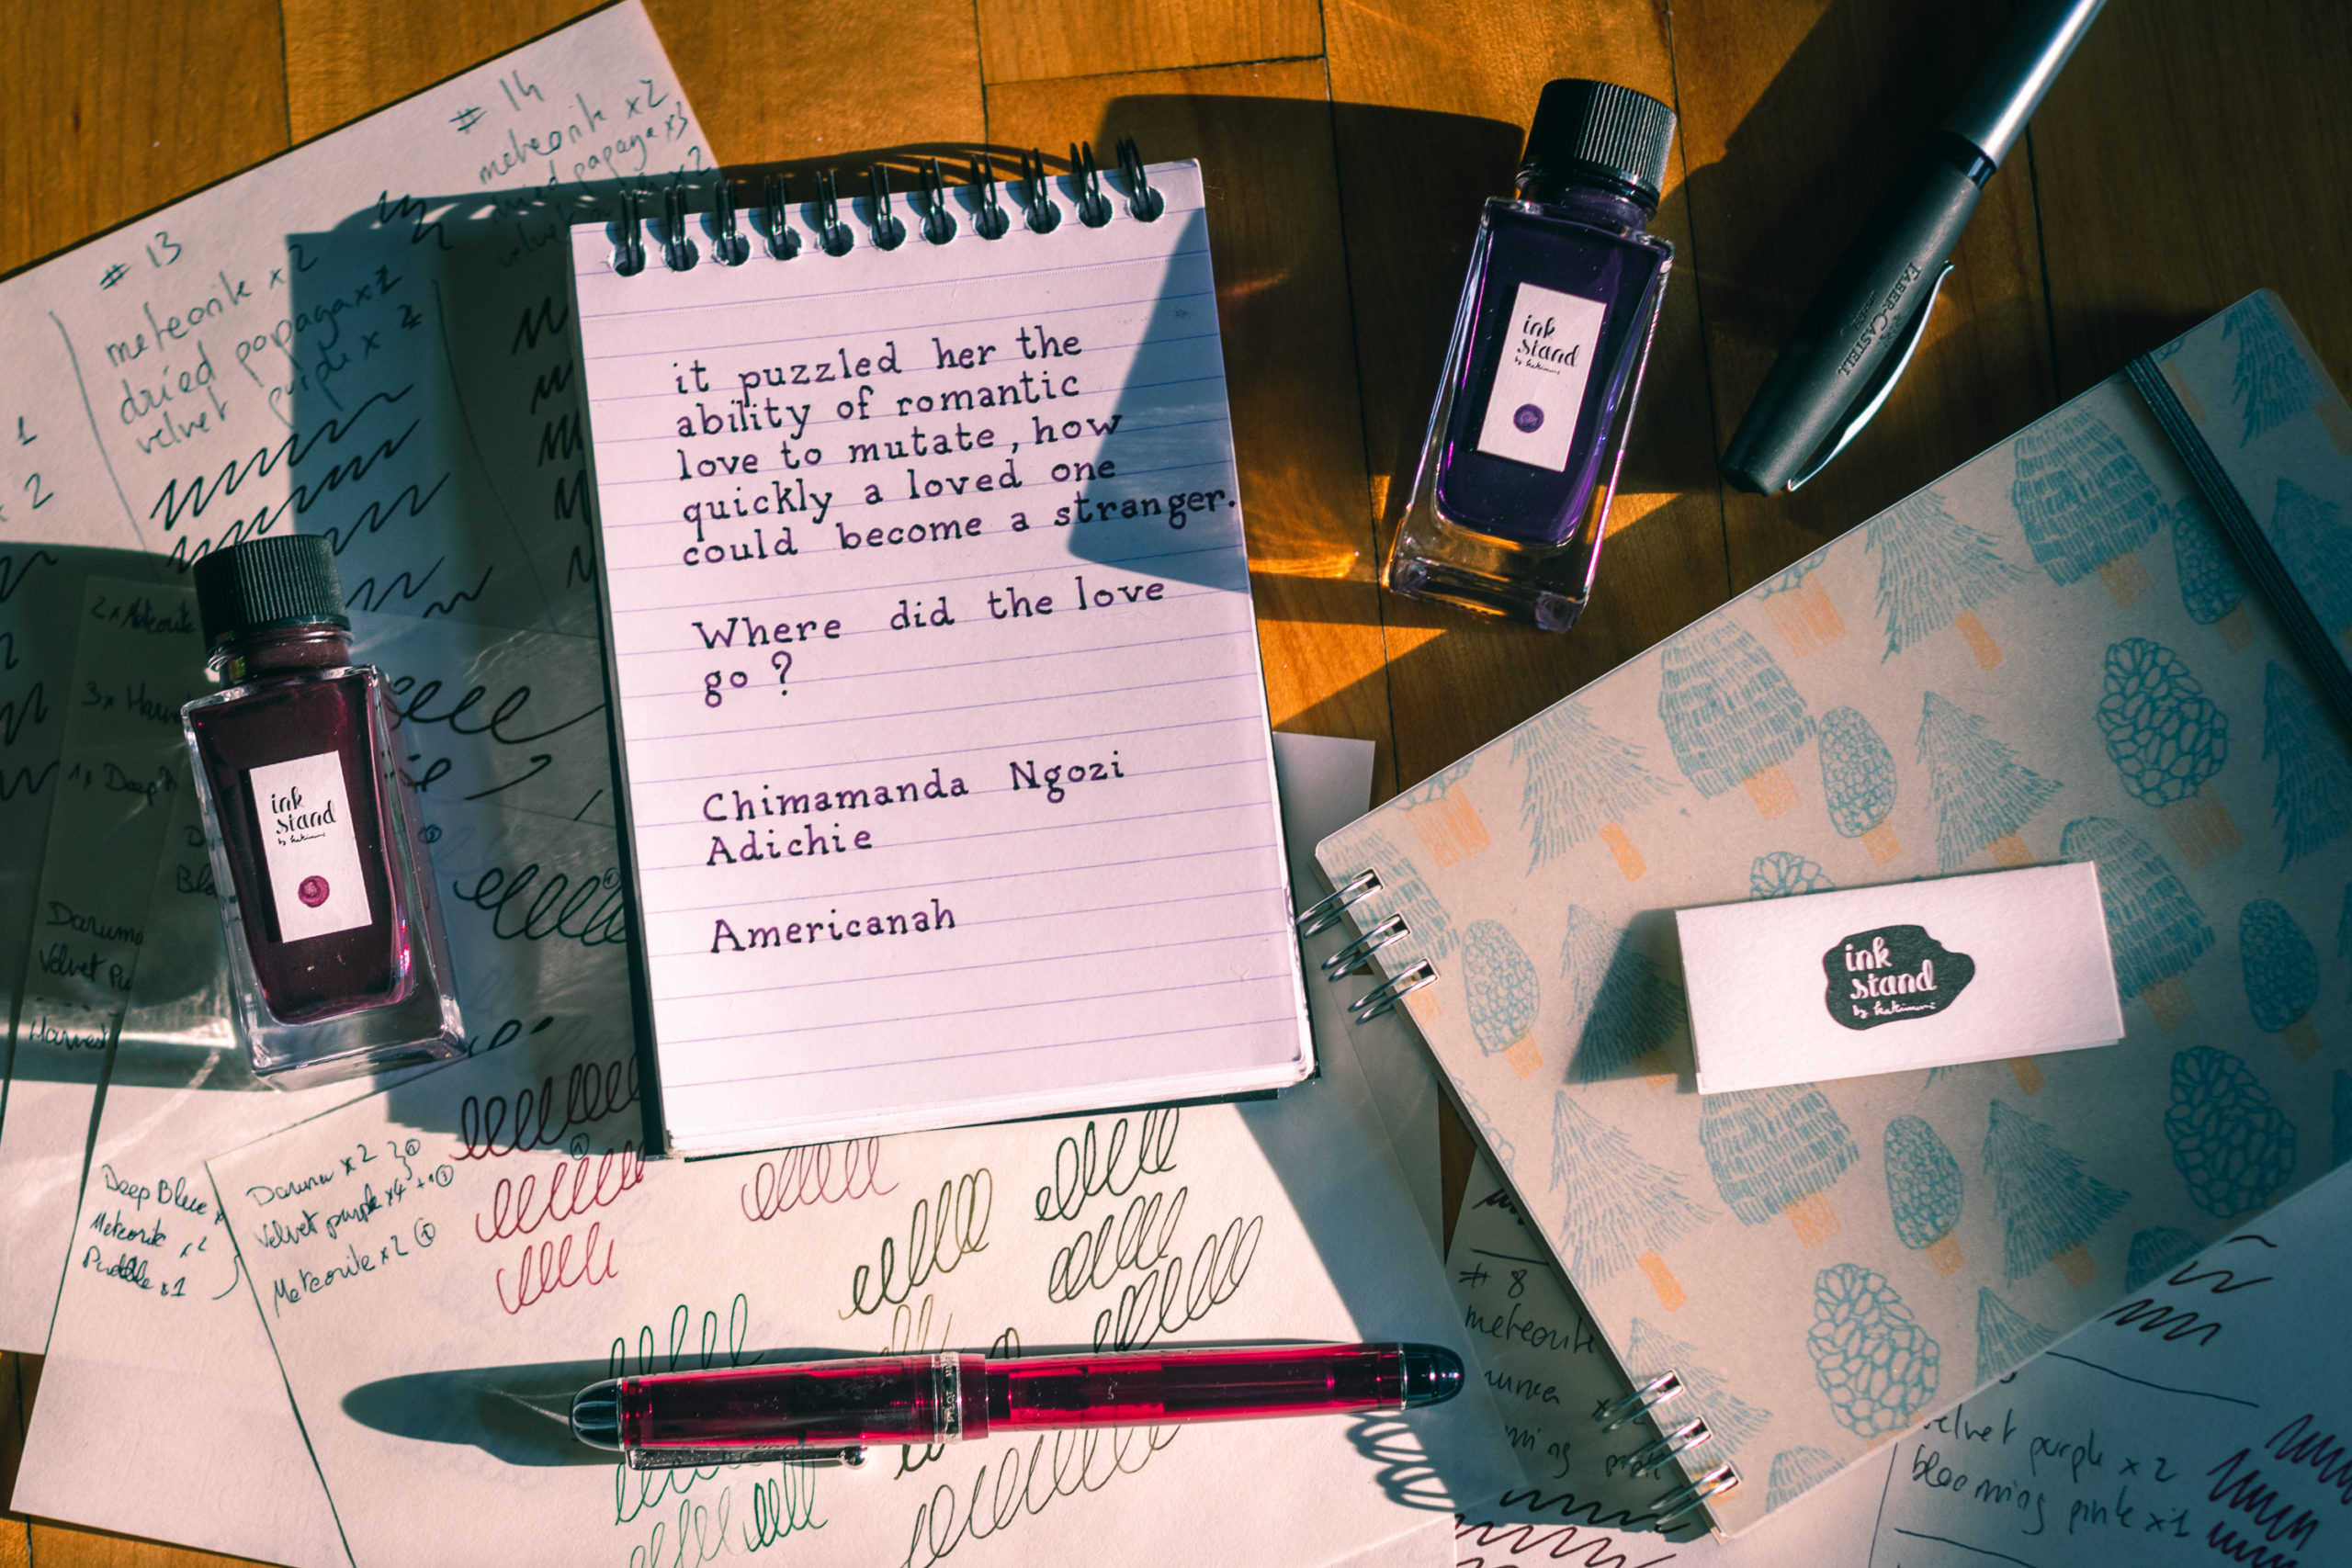 # 14
meteorite x2
dried papaya x3
velvet x2
# 13
meteorite x 2
dried papaya x1
velvet purple x 2
1
x 2
it puzzled her the
ability of romantic
love to mutate, how
quickly a loved one
could become a stranger.
Where did the love
go?
Chimamanda Ngozi
Adichie
Americanah
ink
stand
by kakimori
FABER-CASTELL
2x Meteorite
3x
1x Deep
ink
stand
by kakimori
Daruma
Velvet Pu
Harvest
ink
stand
by kakimori
Deep Blue x
Meteorite x2
Puddle x1
Daruma x2
Velvet purple x4 +
Meteorite x2
PILOT
# 8
meteorite
velvet purple x 2
blooming pink x1